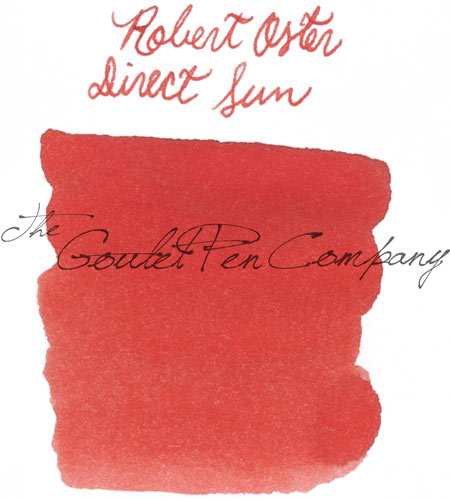 Robert Oster
Direct Sun
The Goulet Pen Company